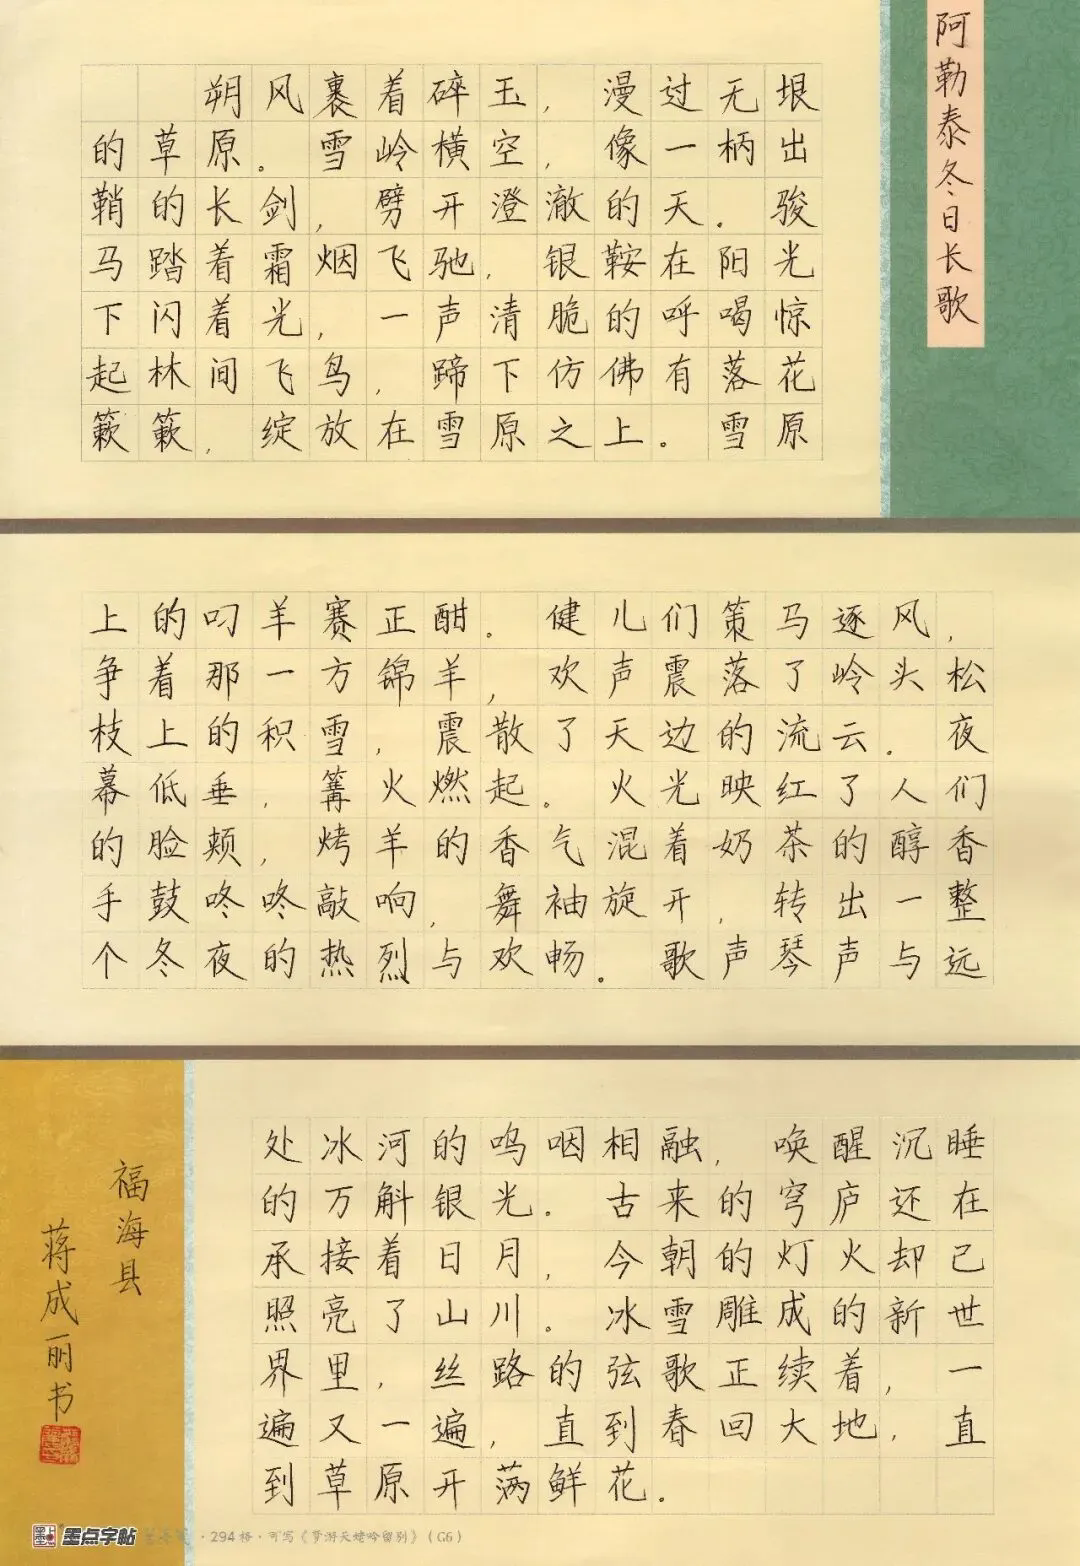 阿勒泰冬日长歌
朔风裹着碎玉，漫过无垠
的草原。雪岭横空，像一柄出
鞘的长剑，劈开澄澈的天。骏
马踏着霜烟飞驰，银鞍在阳光
下闪着光，一声清脆的呼喝惊
起林间飞鸟，蹄下仿佛有落花
簌簌，绽放在雪原之上。雪原
上的叼羊赛正酣。健儿们策马逐风，
争着那一方锦羊，欢声震落了岭头松
枝上的积雪，震散了天边的流云。夜
幕低垂，篝火燃起。火光映红了人们
的脸颊，烤羊的香气混着奶茶的醇香
手鼓咚咚敲响，舞袖旋开，转出一整
个冬夜的热烈与欢畅。歌声琴声与远
处冰河的呜咽相融，唤醒沉睡
的万斛银光。古来的穹庐还在
承接着日月，今朝的灯火却已
照亮了山川。冰雪雕成的新世
界里，丝路的弦歌正续着，一
遍又一遍，直到春回大地，直
到草原开满鲜花。
福海县
蒋成丽书
墨点字帖
·294格·可写《梦游天姥吟留别》（G6）